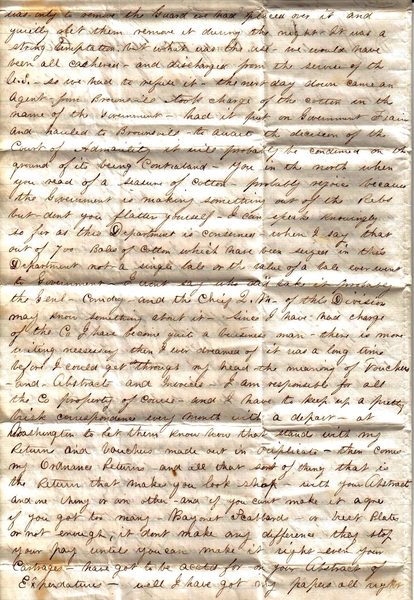 was only to remove the Guard we had placed over it and
quietly let them remove it during the night. It was a
strong temptation, but what was the use - we would have
been all cashered and discharged from the service of the
U.S. - so we had to refuse it - the next day down came an
Agent from Brownsvill took charge of the cotton in the
name of the Government - had it put on Government trains
and hauled to Brownsvill - to await the decision of the
Court of Admirility it will probably be condemned on the
ground of its being Contraband - You in the north when
you read of a seasure of Cotton - probably rejoice because
the Government is making something out of the Rebs
but dont you flatter yourself - I can speak knowingly
so far as this Department is concerned - when I say that
out of 700 Bales of Cotton which have been seized in this
Department not a single bale or the value of a bale ever went
to Government - I wont say who did take it probably
the Genl - and the Chief Q.M. of this Division
may know something about it - Since I have had charge
of the Co I have become quit a buisness man there is more
writing necessary then I ever dreamed of it was a long time
before I could get through my head the meaning of Vouchers
and Abstracts and Invoices - I am responsible for all
the Co property of Coures - and I have to keep up a pretty
brisk correspondence every month with a depart - at
Washington to let them know how that stand with my
Return and Vouchers made out in Duplicate - then comes
my Ordnance Return - and all that sort of thing that is
the Return that make you look sharp - with your Abstract
and one thing or an other - and if you cant make it agree
if you got too many - Bayonet Scabbard - or breast Plate
or not enough, it dont make any difference they stop
your pay untill you can make it right even your
Cartrages - have got to be acctd for on your Abstract of
Expenditure - well I have got my papers all right